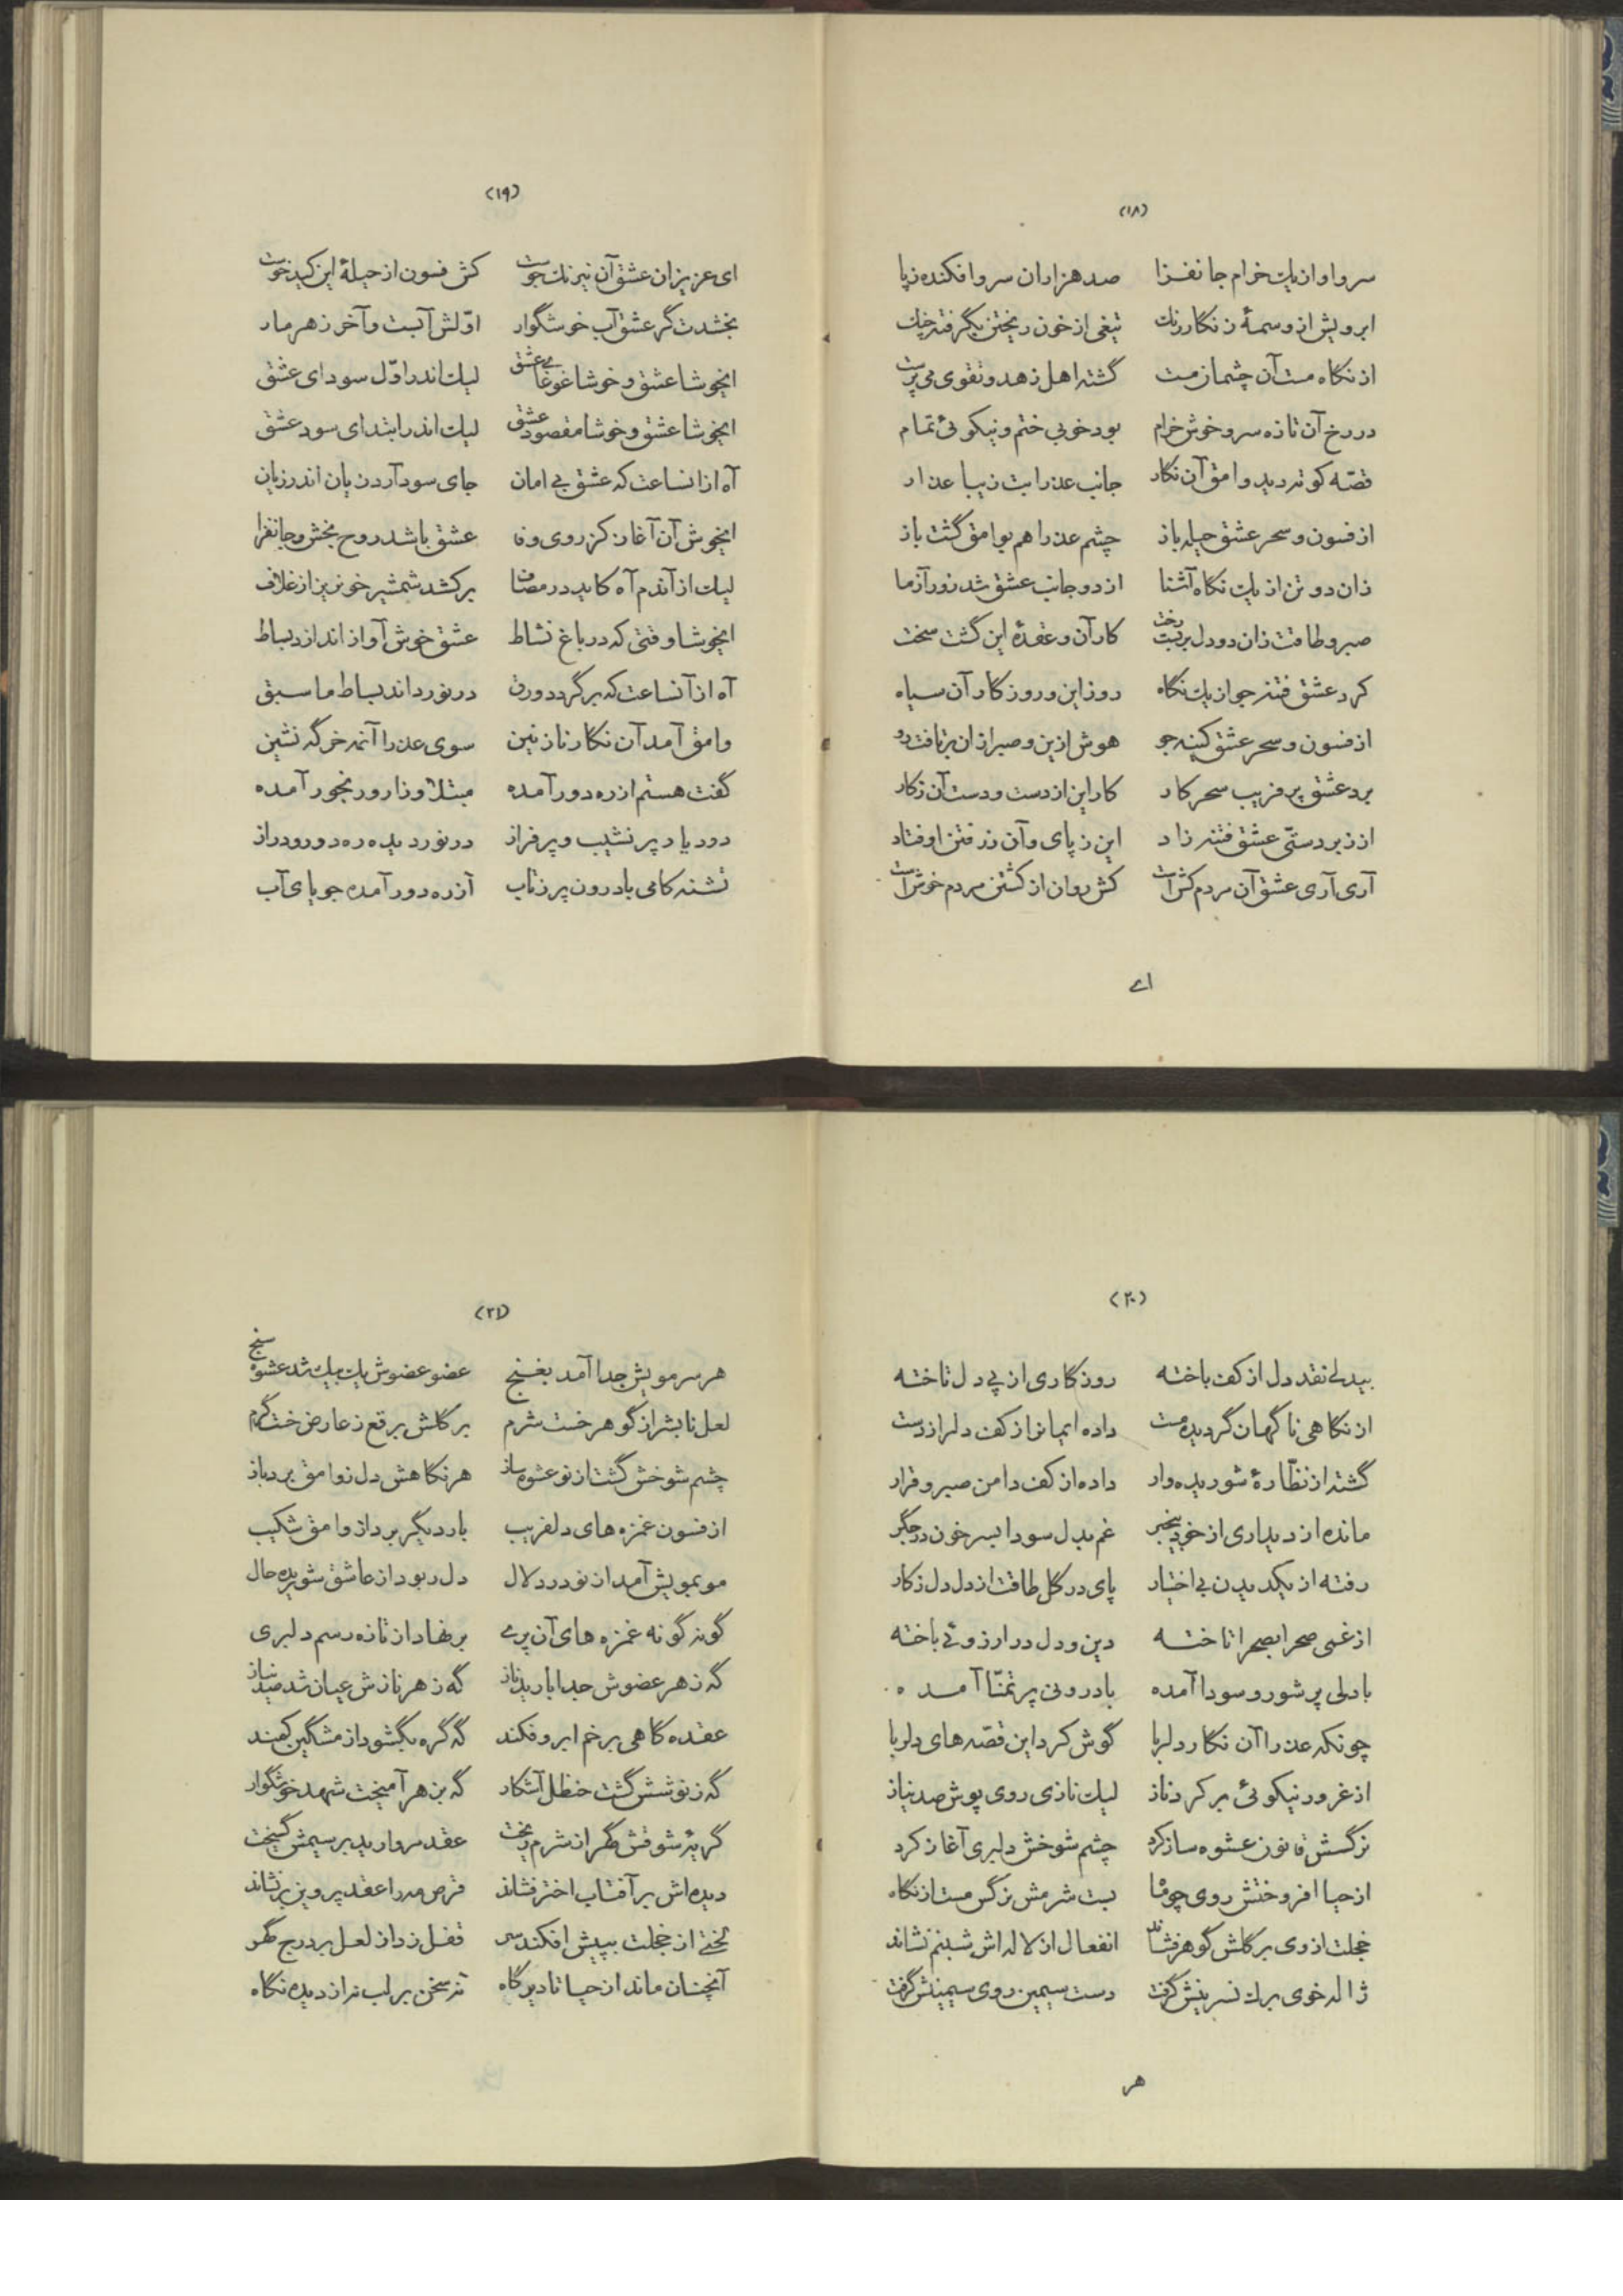 (۱۸)
سرو او از یک خرام جانفزا صد هزاران سرو افکنده ز پا
ابرویش از وسمهٔ زنگار رنگ تیغی از خون ریختن بگرفته زنگ
از نگاه مست آن چشمان مست گشته اهل زهد و تقوی می پرست
در رخ آن تازه سرو خوش خرام بود خوبی ختم و نیکوئی تمام
قصّه کوته دید وامق آن نگار جانب عذرا بت زیبا عذار
از فسون و سحر عشق حیله باز چشم عذرا هم بوامق گشت باز
زان دو تن از یک نگاه آشنا از دو جانب عشق شد زور آزما
صبر و طاقت زان دو دل بربست رخت کار آن و عقدهٔ این گشت سخت
کرد عشق فتنه جو از یک نگاه روز این و روزگار آن سیاه
از فسون و سحر عشق کینه جو هوش ازین و صبر ازان برتافت رو
برد عشق پر فریب سحر کار کار این از دست و دست آن ز کار
از زبردستّی عشق فتنه زاد این ز پای و آن ز رفتن اوفتاد
آری آری عشق آن مردم کش است کش روان از کشتن مردم خوش است
ای
(۱۹)
ای عزیزان عشق آن نیرنگ جوست کش فسون از حیلهٔ این کید خوست
بخشدت گر عشق آب خوشگوار اوّلش آبست و آخر زهر مار
ایخوشا عشق و خوشا غوغای عشق لیک اندر اوّل سودای عشق
ایخوشا عشق و خوشا مقصود عشق لیک اندر ابتدای سود عشق
آه ازانساعت که عشق بی امان جای سود آرد زیان اندر زیان
ایخوش آن آغاز کز روی وفا عشق باشد روح بخش و جانفزا
لیک از آندم آه کاید در مصاف برکشد شمشیر خونریز از غلاف
ایخوشا وقتی که در باغ نشاط عشق خوش آواز اندازد بساط
آه از آنساعت که برگردد ورق در نوردد اند بساط ما سبق
وامق آمد آن نگار نازنین سوی عذرا آنمه خرگه نشین
گفت هستم از ره دور آمده مبتلا و زار و رنجور آمده
دور یا در پر نشیب و پر فراز در نوردیده ره دور و دراز
تشنه کامی با درون پر ز تاب از ره دور آمده جویای آب
(۲۰)
بیدلی نقد دل از کف باخته روزگاری از پی دل تاخته
از نگاهی ناگهان گردیده مست داده ایمانرا ز کف دلرا ز دست
گشته از نظّارهٔ شوریده وار داده از کف دامن صبر و قرار
مانده از دیداری از خود بیخبر غم بدل سودا بسر خون در جگر
رفته از یکدیدن بی اختیار پای در گل طاقت از دل دل ز کار
از غمی صحرا بصحرا تاخته دین و دل در ارزوئی باخته
با دلی پر شور و سودا آمده با درونی پر تمنّا آمده
چونکه عذرا آن نگار دلربا گوش کرد این قصّه های دلربا
از غرور نیکوئی بر کرد ناز لیک نازی روی پوش صد نیاز
نرگسش قانون عشوه ساز کرد چشم شوخش دلبری آغاز کرد
از حیا افروختش روی چو ماه بست شرمش نرگس مست از نگاه
خجلت از وی بر گلش گوهر فشاند انفعال از لاله اش شبنم نشاند
ژاله خوی برگ نسرینش گرفت دست سیمین روی سیمینش گرفت
هر
(۲۱)
هر سر مویش جدا آمد بغنج عضو عضوش یک بیک شد عشوه سنج
لعل نابش را ز گوهر خست شرم بر گلش برقع ز عارض خت گرم
چشم شوخش گشت از نو عشوه ساز هر نگاهش دل ز وامق برد باز
از فسون غمزه های دلفریب بار دیگر برد از وامق شکیب
مو بمویش آمد از نو در دلال دل ربود از عاشق شوریده حال
گونه گونه غمزه های آن پری بر نهاد از تازه رسم دلبری
گه ز هر عضوش جدا بارید ناز گه ز هر نازش عیان شد صد نیاز
عقده گاهی بر خم ابرو فکند گه گره بگشود از مشگین کمند
گه ز نوشش گشت حنظل آشکار گه بزهر آمیخت شهد خوشگوار
گریهٔ شوقش گهر از شرم ریخت عقد مروارید بر سیمش گسیخت
دیده اش بر آفتاب اختر فشاند قرص مه را عقد پروین برنشاند
لختی از خجلت بپیش افکند سر قفل زد از لعل بر درج گهر
آنچنان ماند از حیا تا دیرگاه نه سخن بر لب نه از دیده نگاه